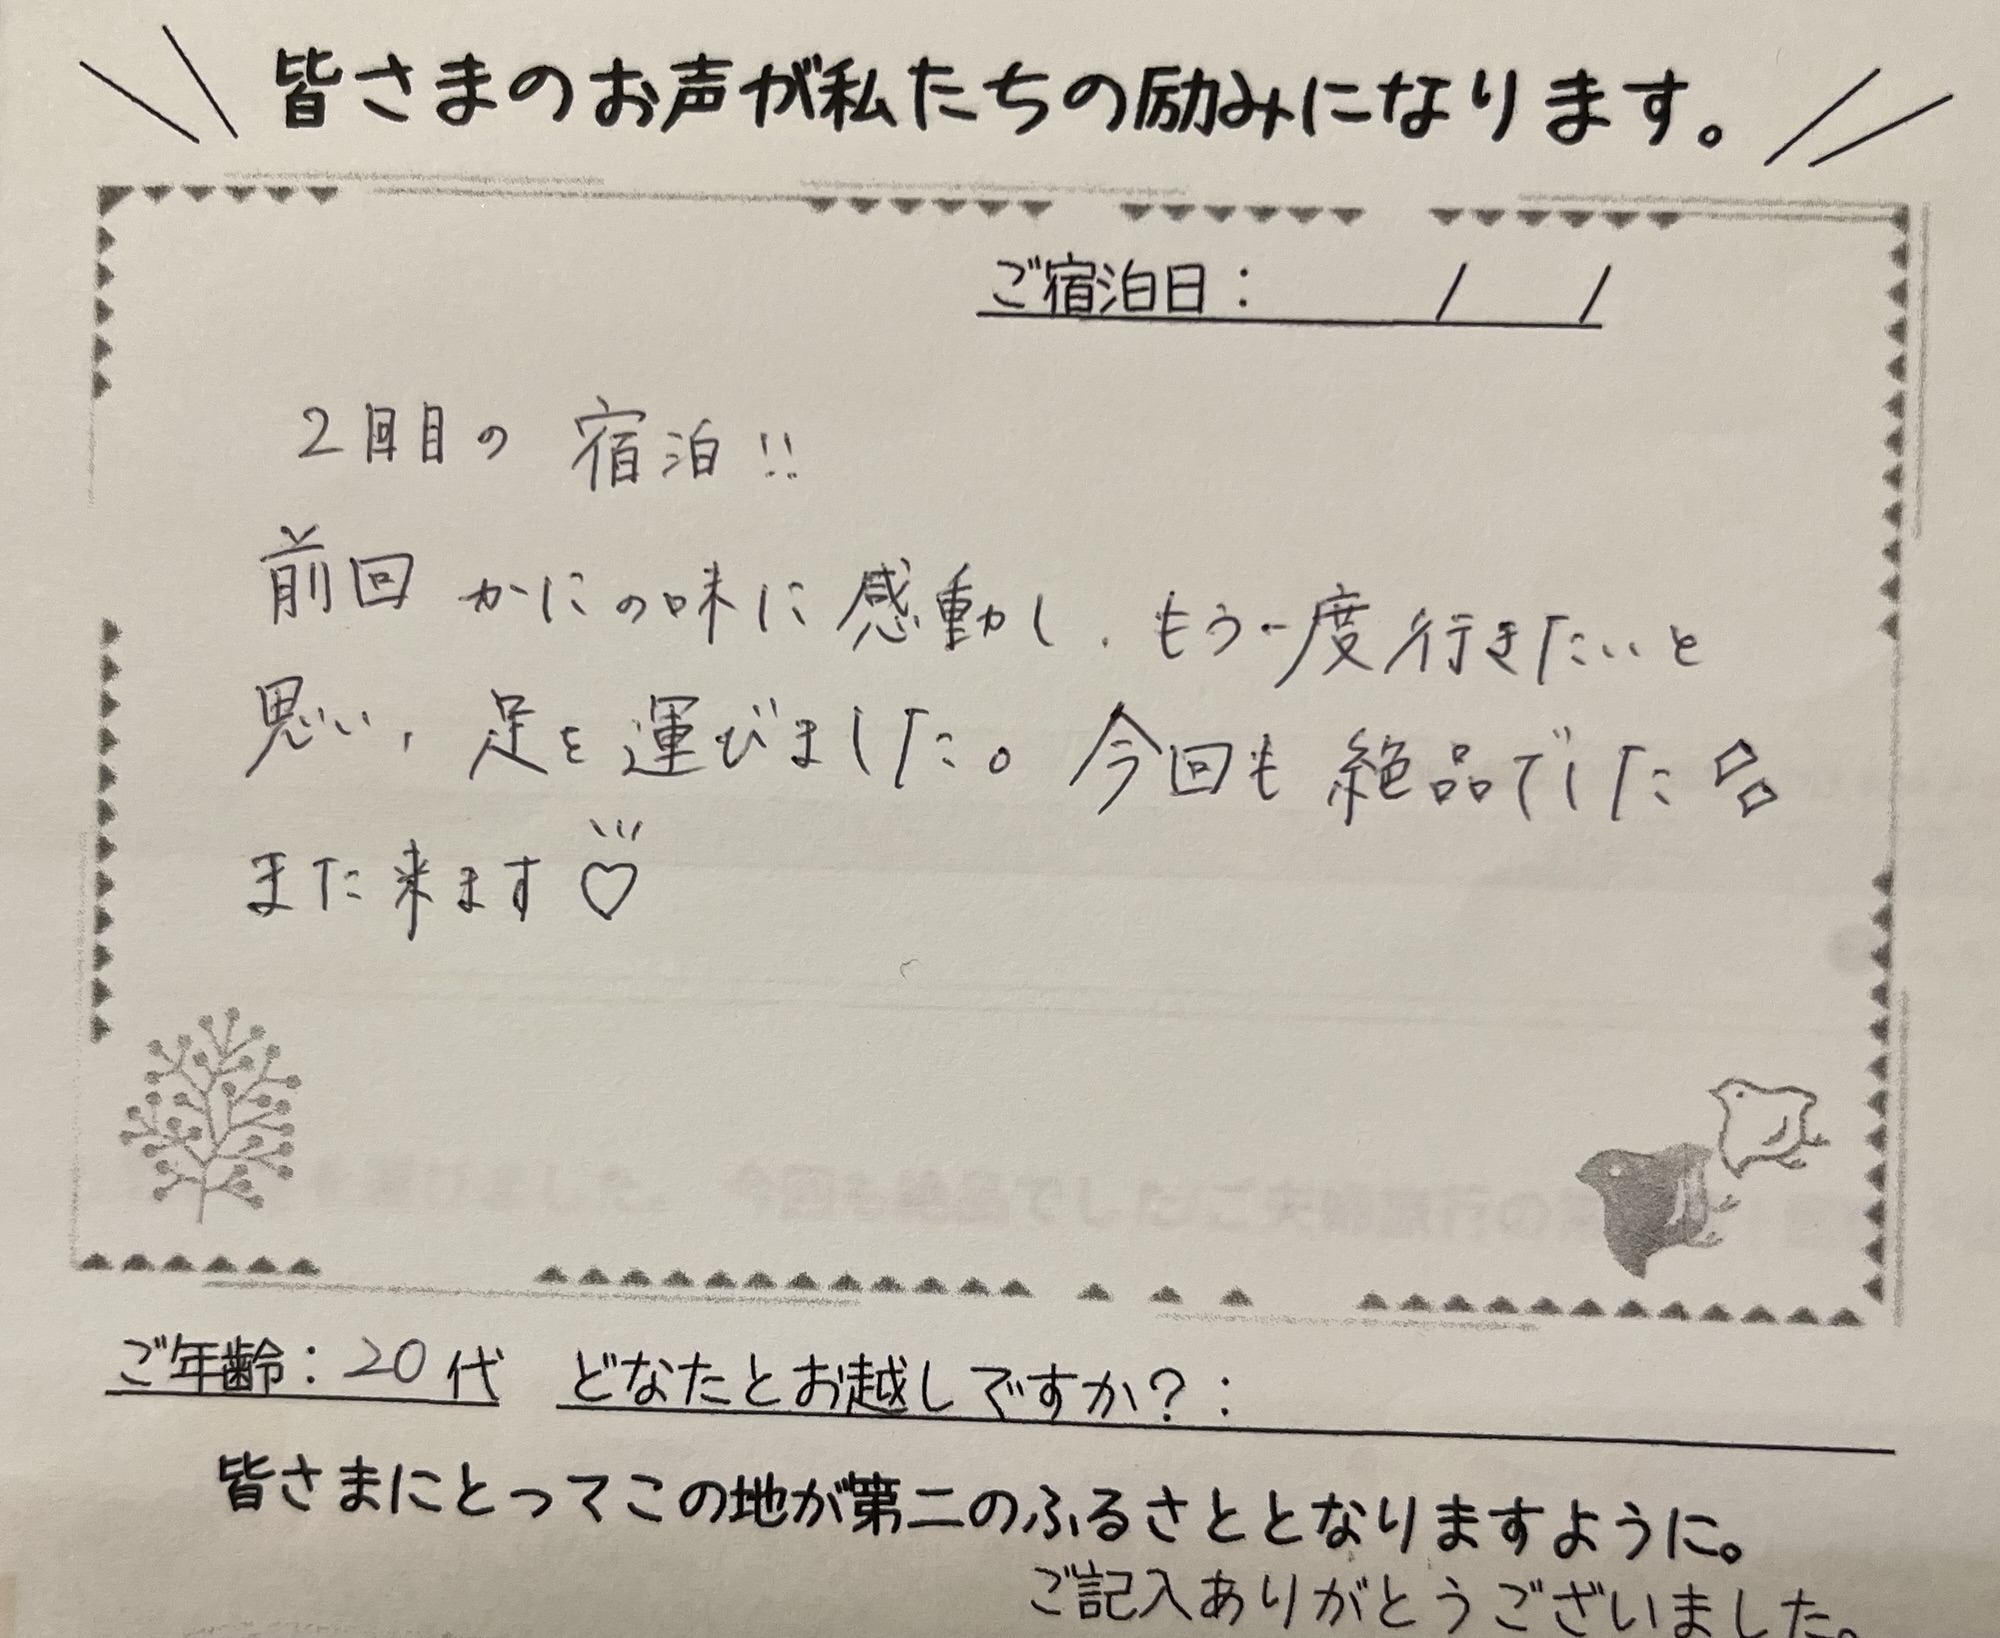 皆さまのお声が私たちの励みになります。
ご宿泊日： / /
2回目の宿泊!!
前回かにの味に感動し、もう一度行きたいと
思い、足を運びました。今回も絶品でした
また来ます♡
ご年齢：20代 どなたとお越しですか？：
皆さまにとってこの地が第二のふるさととなりますように。
ご記入ありがとうございました。